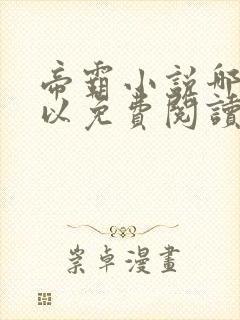 帝霸小説哪
以免費閱讀
崇卓漫畫